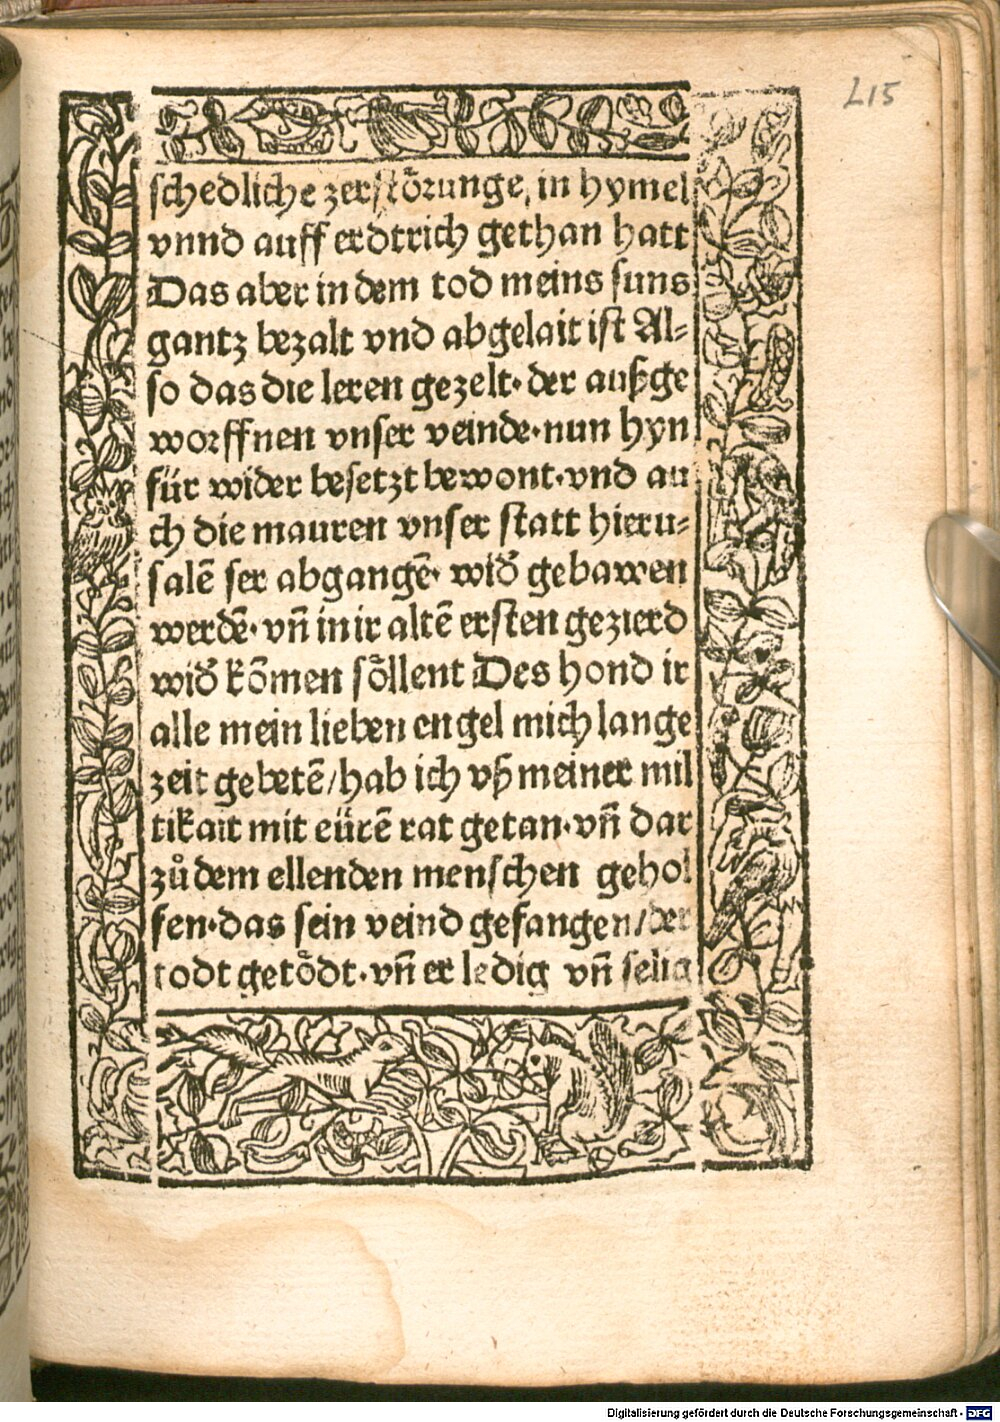 L15
schedliche zerstörunge, in hymel
vnnd auff erdtrich gethan hatt
Das aber in dem tod meins suns
gantz bezalt vnd abgelait ist Al-
so das die leren gezelt· der außge
worffnen vnser veinde·nun hyn
für wider besetzt bewont·vnd au
ch die mauren vnser statt hieru-
salē ser abgangē· wid̄ gebawen
werdē· vn̄ in ir altē ersten gezierd
wid̄ kōmen söllent Des hond ir
alle mein lieben engel mich lange
zeit gebetē/hab ich vß meiner mil
tikait mit eürē rat getan·vn̄ dar
zů dem ellenden menschen gehol
fen·das sein veind gefangen/der
todt getödt·vn̄ er ledig vn̄ selig
Digitalisierung gefördert durch die Deutsche Forschungsgemeinschaft - DFG